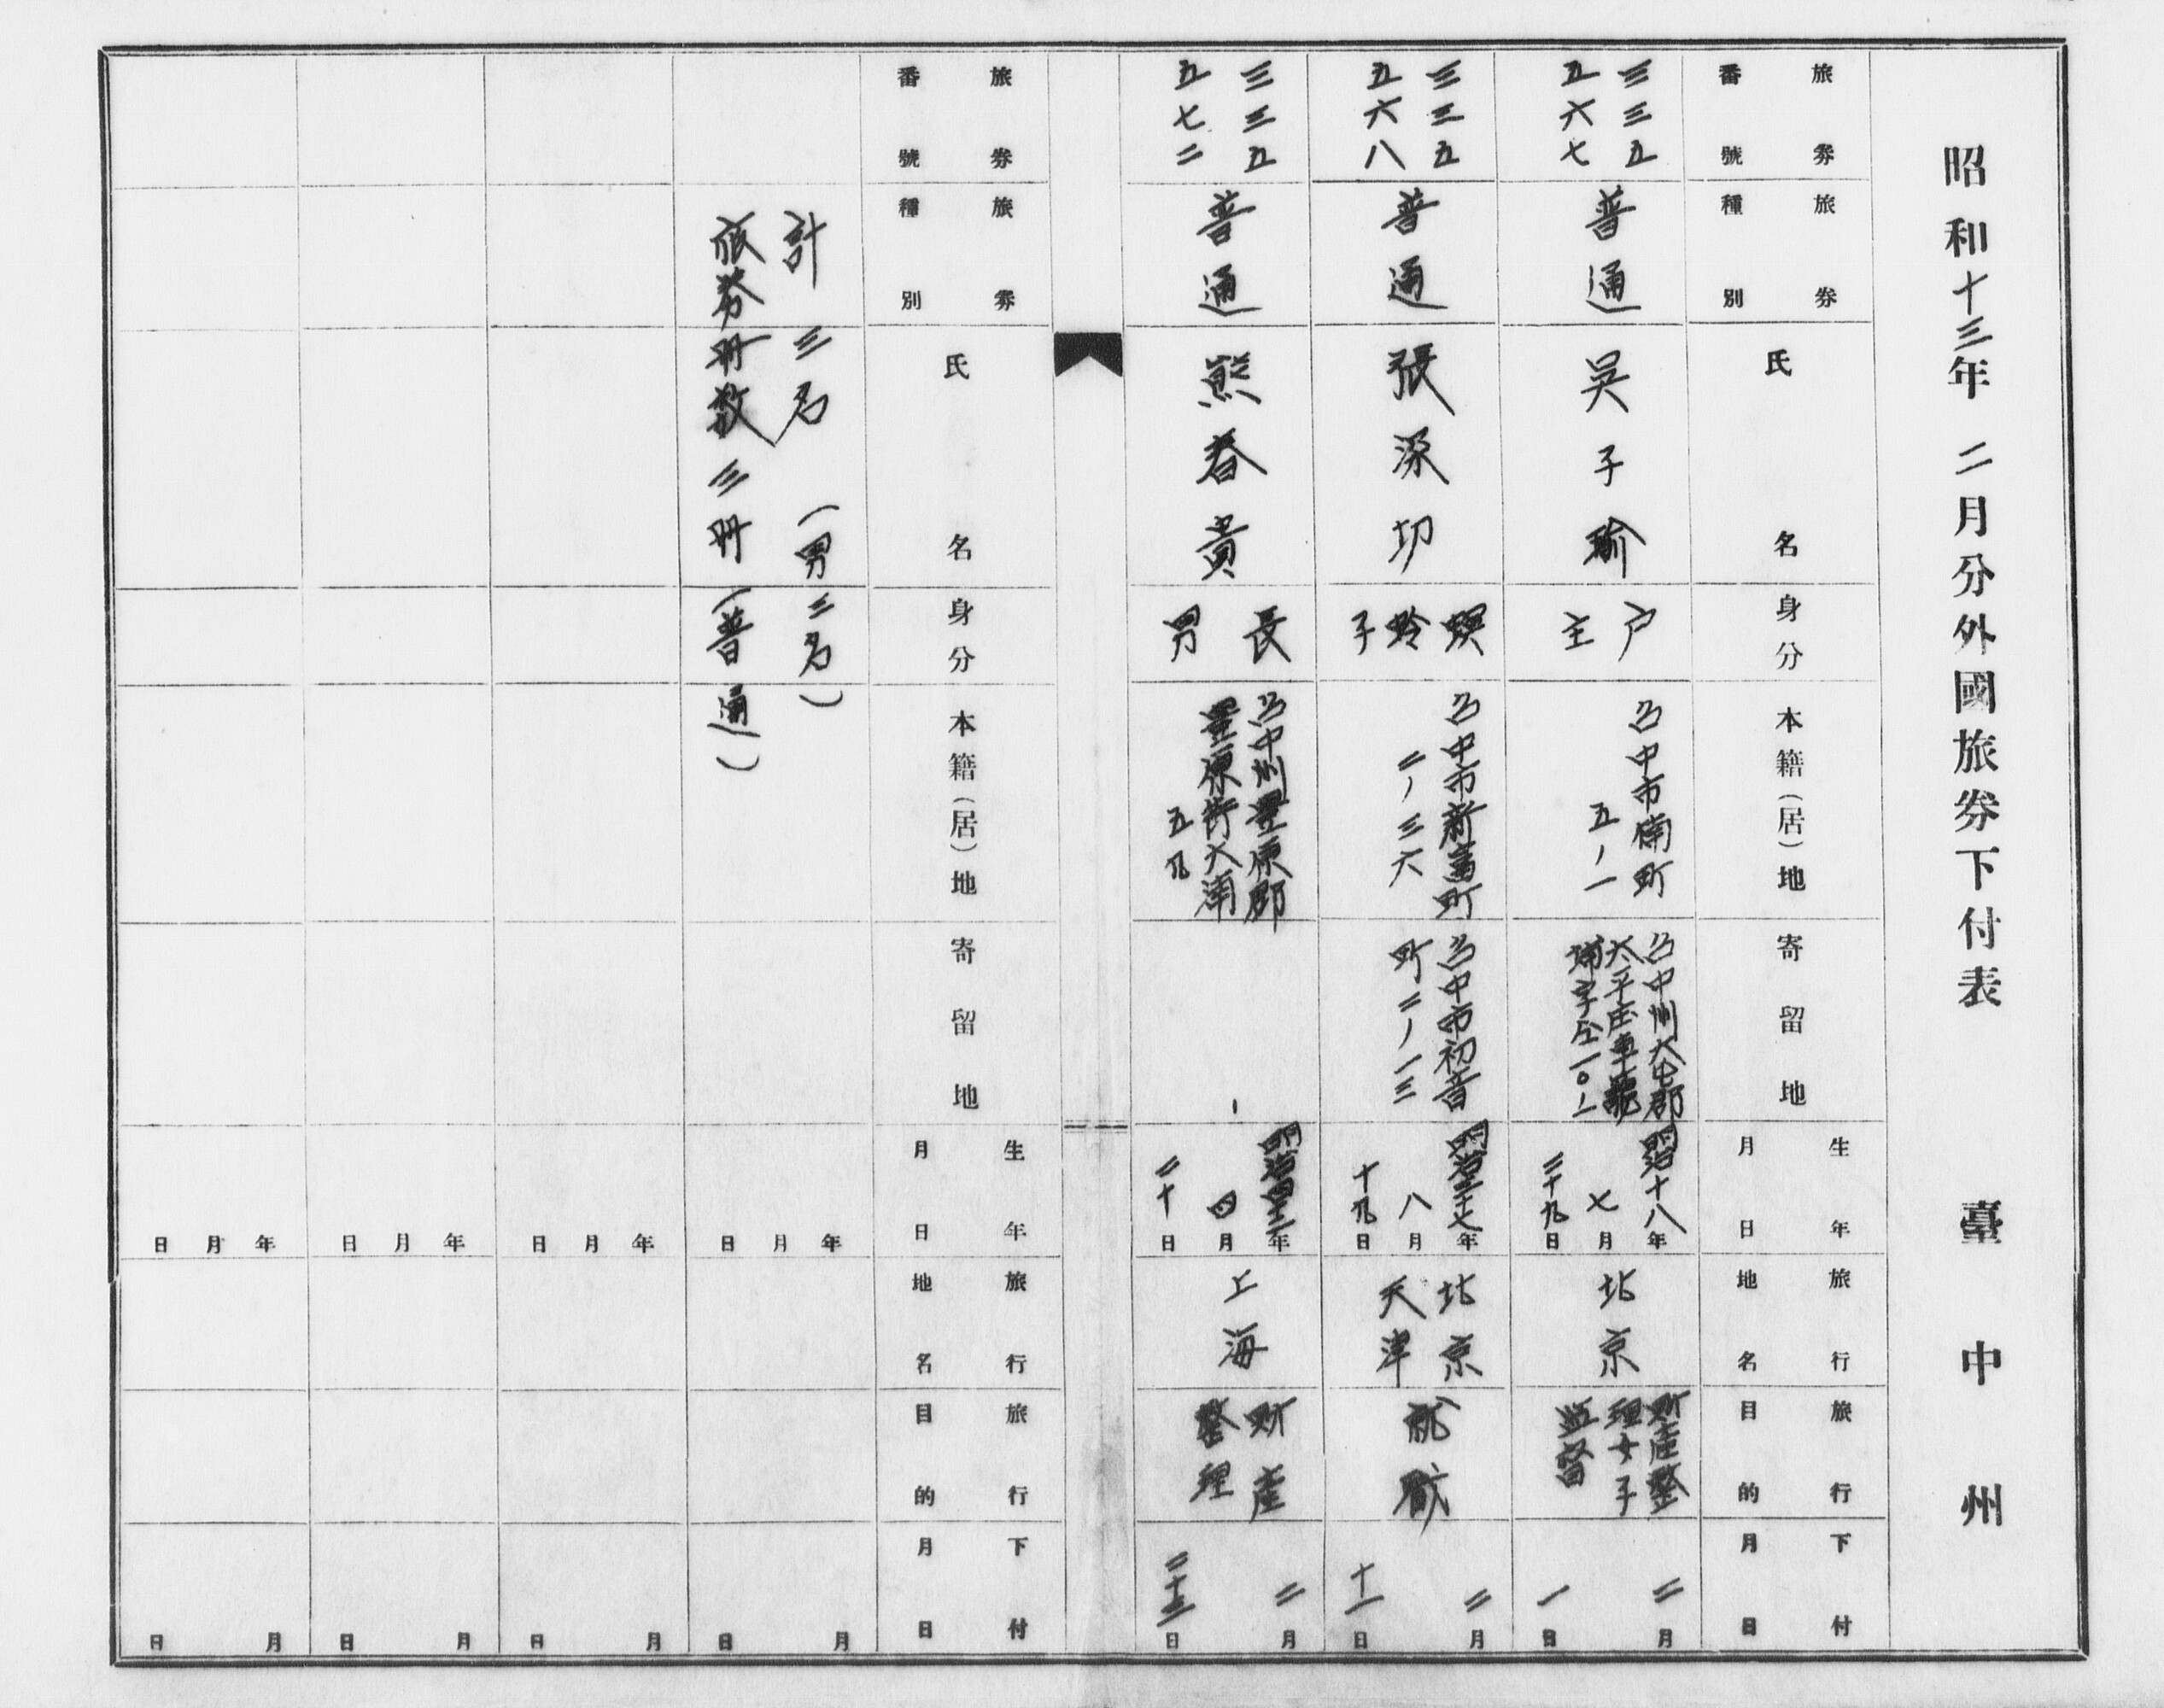 昭和十三年 二月分外國旅券下付表 臺中州
旅券番號
旅券種別
氏名
身分
本籍(居)地
寄留地
生年月日
旅行地名
旅行目的
下付月日
三三五
五六七
普通
吳子瑜
戶主
台中市楠町
五ノ一
台中州大屯郡
太平庄車籠
埔字仝一〇一
明治十八年
七月
二十九日
北京
財產整
理女子
監督
二月
一日
三三五
五六八
普通
張深切
螟蛉子
台中市新富町
二ノ三六
台中市初音
町二ノ一三
明治三十七年
八月
十九日
北京
天津
就職
二月
十一日
三三五
五七二
普通
熊春貴
長男
台中州豐原郡
豐原街大湳
五九
四月
二十日
上海
財產
整理
二月
日
旅券番號
旅券種別
氏名
身分
本籍(居)地
寄留地
生年月日
旅行地名
旅行目的
下付月日
計 三名 (男三名)
旅券冊数 三冊 (普通)
年月日
月日
年月日
月日
年月日
月日
年月日
月日